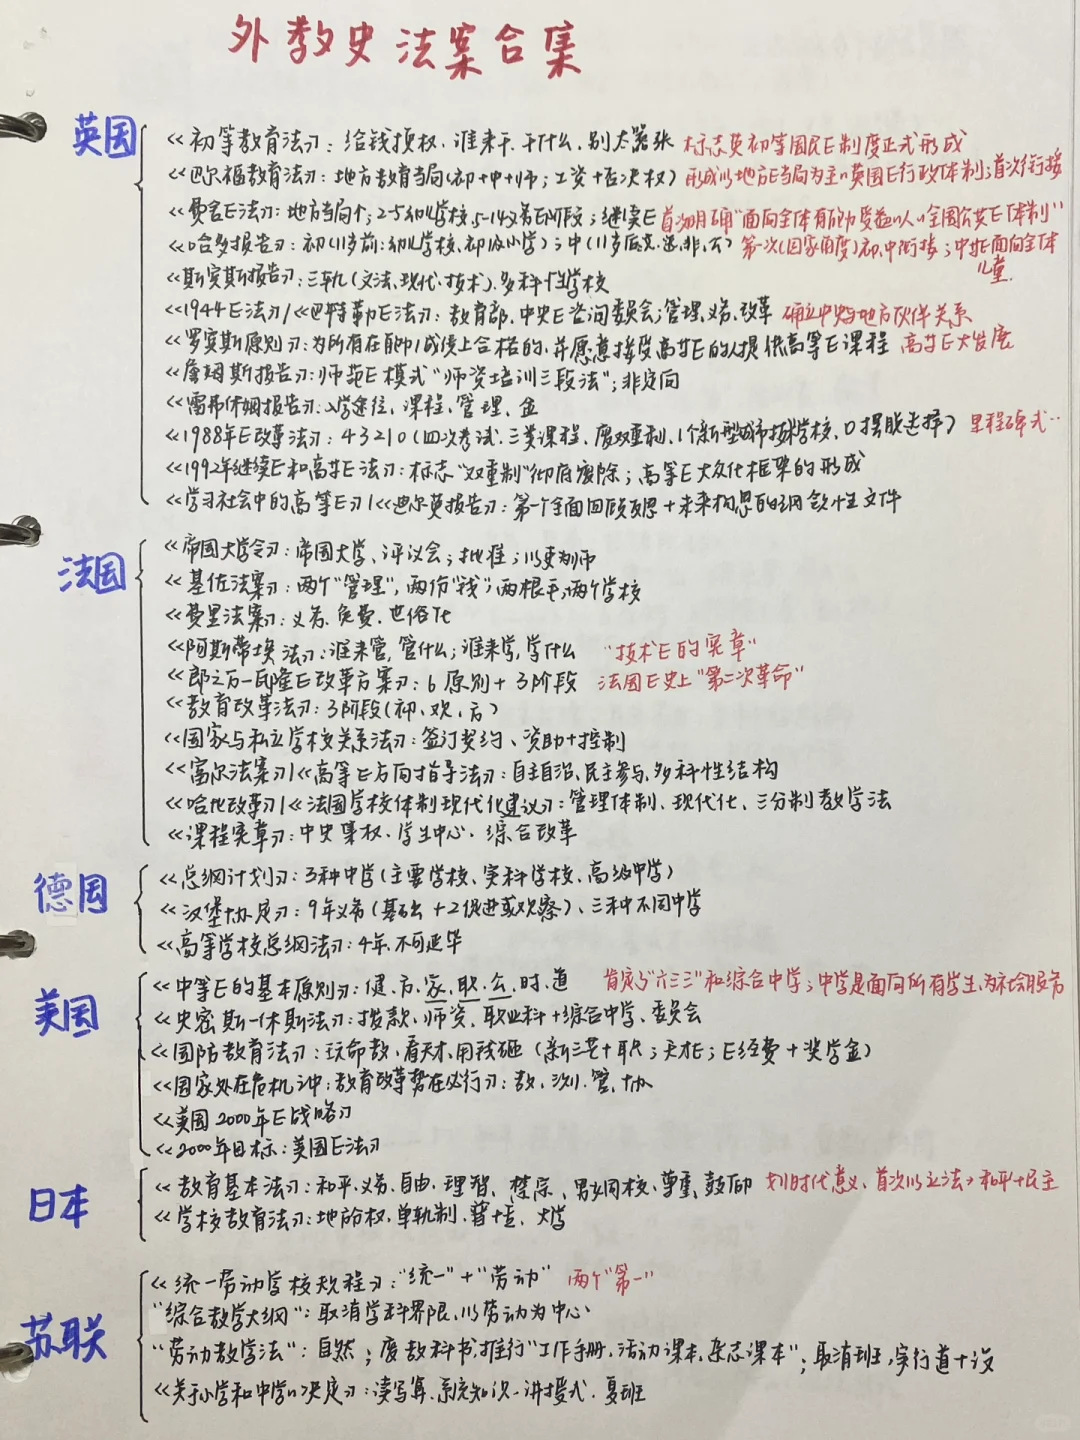 外教史法案合集
英国
《初等教育法》：给钱授权、谁来干、干什么、别太嚣张 标志英初等国民E制度正式形成
《巴尔福教育法》：地方教育当局(初+中+师；工资+否决权) 形成以地方E当局为主的英国E行政体制；首次衔接
《费舍E法》：地方当局个；2-5幼儿学校、5-14义务E阶段；继续E 首次明确“面向全体有能力受益的人的全国公共E体制”
《哈多报告》：初(11岁前：幼儿学校、初级小学)；中(11岁后 选、非、公) 第一次(国家角度)初、中衔接；中等E面向全体儿童
《斯宾斯报告》：三轨(文法、现代、技术)、多科性学校
《1944E法》/《巴特勒E法》：教育部、中央E咨询委员会；管理、义务、改革 确立中央与地方伙伴关系
《罗宾斯原则》：为所有在能力成绩上合格的、并愿意接受高等E的人提供高等E课程 高等E大发展
《詹姆斯报告》：师范E模式“师资培训三段法”；非定向
《雷弗休姆报告》：入学途径、课程、管理、金
《1988年E改革法》：43210(四次考试、三类课程、废双重制、1个新型城市技术学校、0摆脱选择) 里程碑式…
《1992年继续E和高等E法》：标志“双重制”彻底废除；高等E大众化框架的形成
《学习社会中的高等E》/《迪尔英报告》：第一个全面回顾反思+未来构思的纲领性文件
法国
《帝国大学令》：帝国大学、评议会；批准；以吏为师
《基佐法案》：两个“管理”，两份“钱”；两根毛，两个学校
《费里法案》：义务、免费、世俗化
《阿斯蒂埃法》：谁来管，管什么；谁来学，学什么 “技术E的宪章”
《郎之万—瓦隆E改革方案》：6原则+3阶段 法国E史上“第二次革命”
《教育改革法》：3阶段(初、观、方)
《国家与私立学校关系法》：签订契约、资助+控制
《富尔法案》/《高等E方向指导法》：自主自治、民主参与、多科性结构
《哈比改革》/《法国学校体制现代化建议》：管理体制、现代化、三分制教学法
《课程宪章》：中央集权、学生中心、综合改革
德国
《总纲计划》：3种中学(主要学校、实科学校、高级中学)
《汉堡协定》：9年义务(基础+2促进或观察)、三种不同中学
《高等学校总纲法》：4年、不可延毕
美国
《中等E的基本原则》：健、方、家、职、公、时、道 肯定了“六三三”和综合中学；中学是面向所有学生、为社会服务
《史密斯—休斯法》：拨款、师资、职业科+综合中学、委员会
《国防教育法》：玩命教、看天才、用钱砸(新三艺+职；天才E；E经费+奖学金)
《国家处在危机之中：教育改革势在必行》：教、测、管、协
《美国2000年E战略》
《2000年目标：美国E法》
日本
《教育基本法》：和平、义务、自由、理智、禁宗、男女同校、尊重、鼓励 划时代意义、首次以立法→和平+民主
《学校教育法》：地方分权、单轨制、普+专、大学
苏联
《统一劳动学校规程》：“统一”+“劳动” 两个“第一”
“综合教学大纲”：取消学科界限、以劳动为中心
“劳动教学法”：自然；废教科书，推行“工作手册、活动课本、杂志课本”；取消班，实行道+设
《关于小学和中学的决定》：读写算、系统知识、讲授式、复班